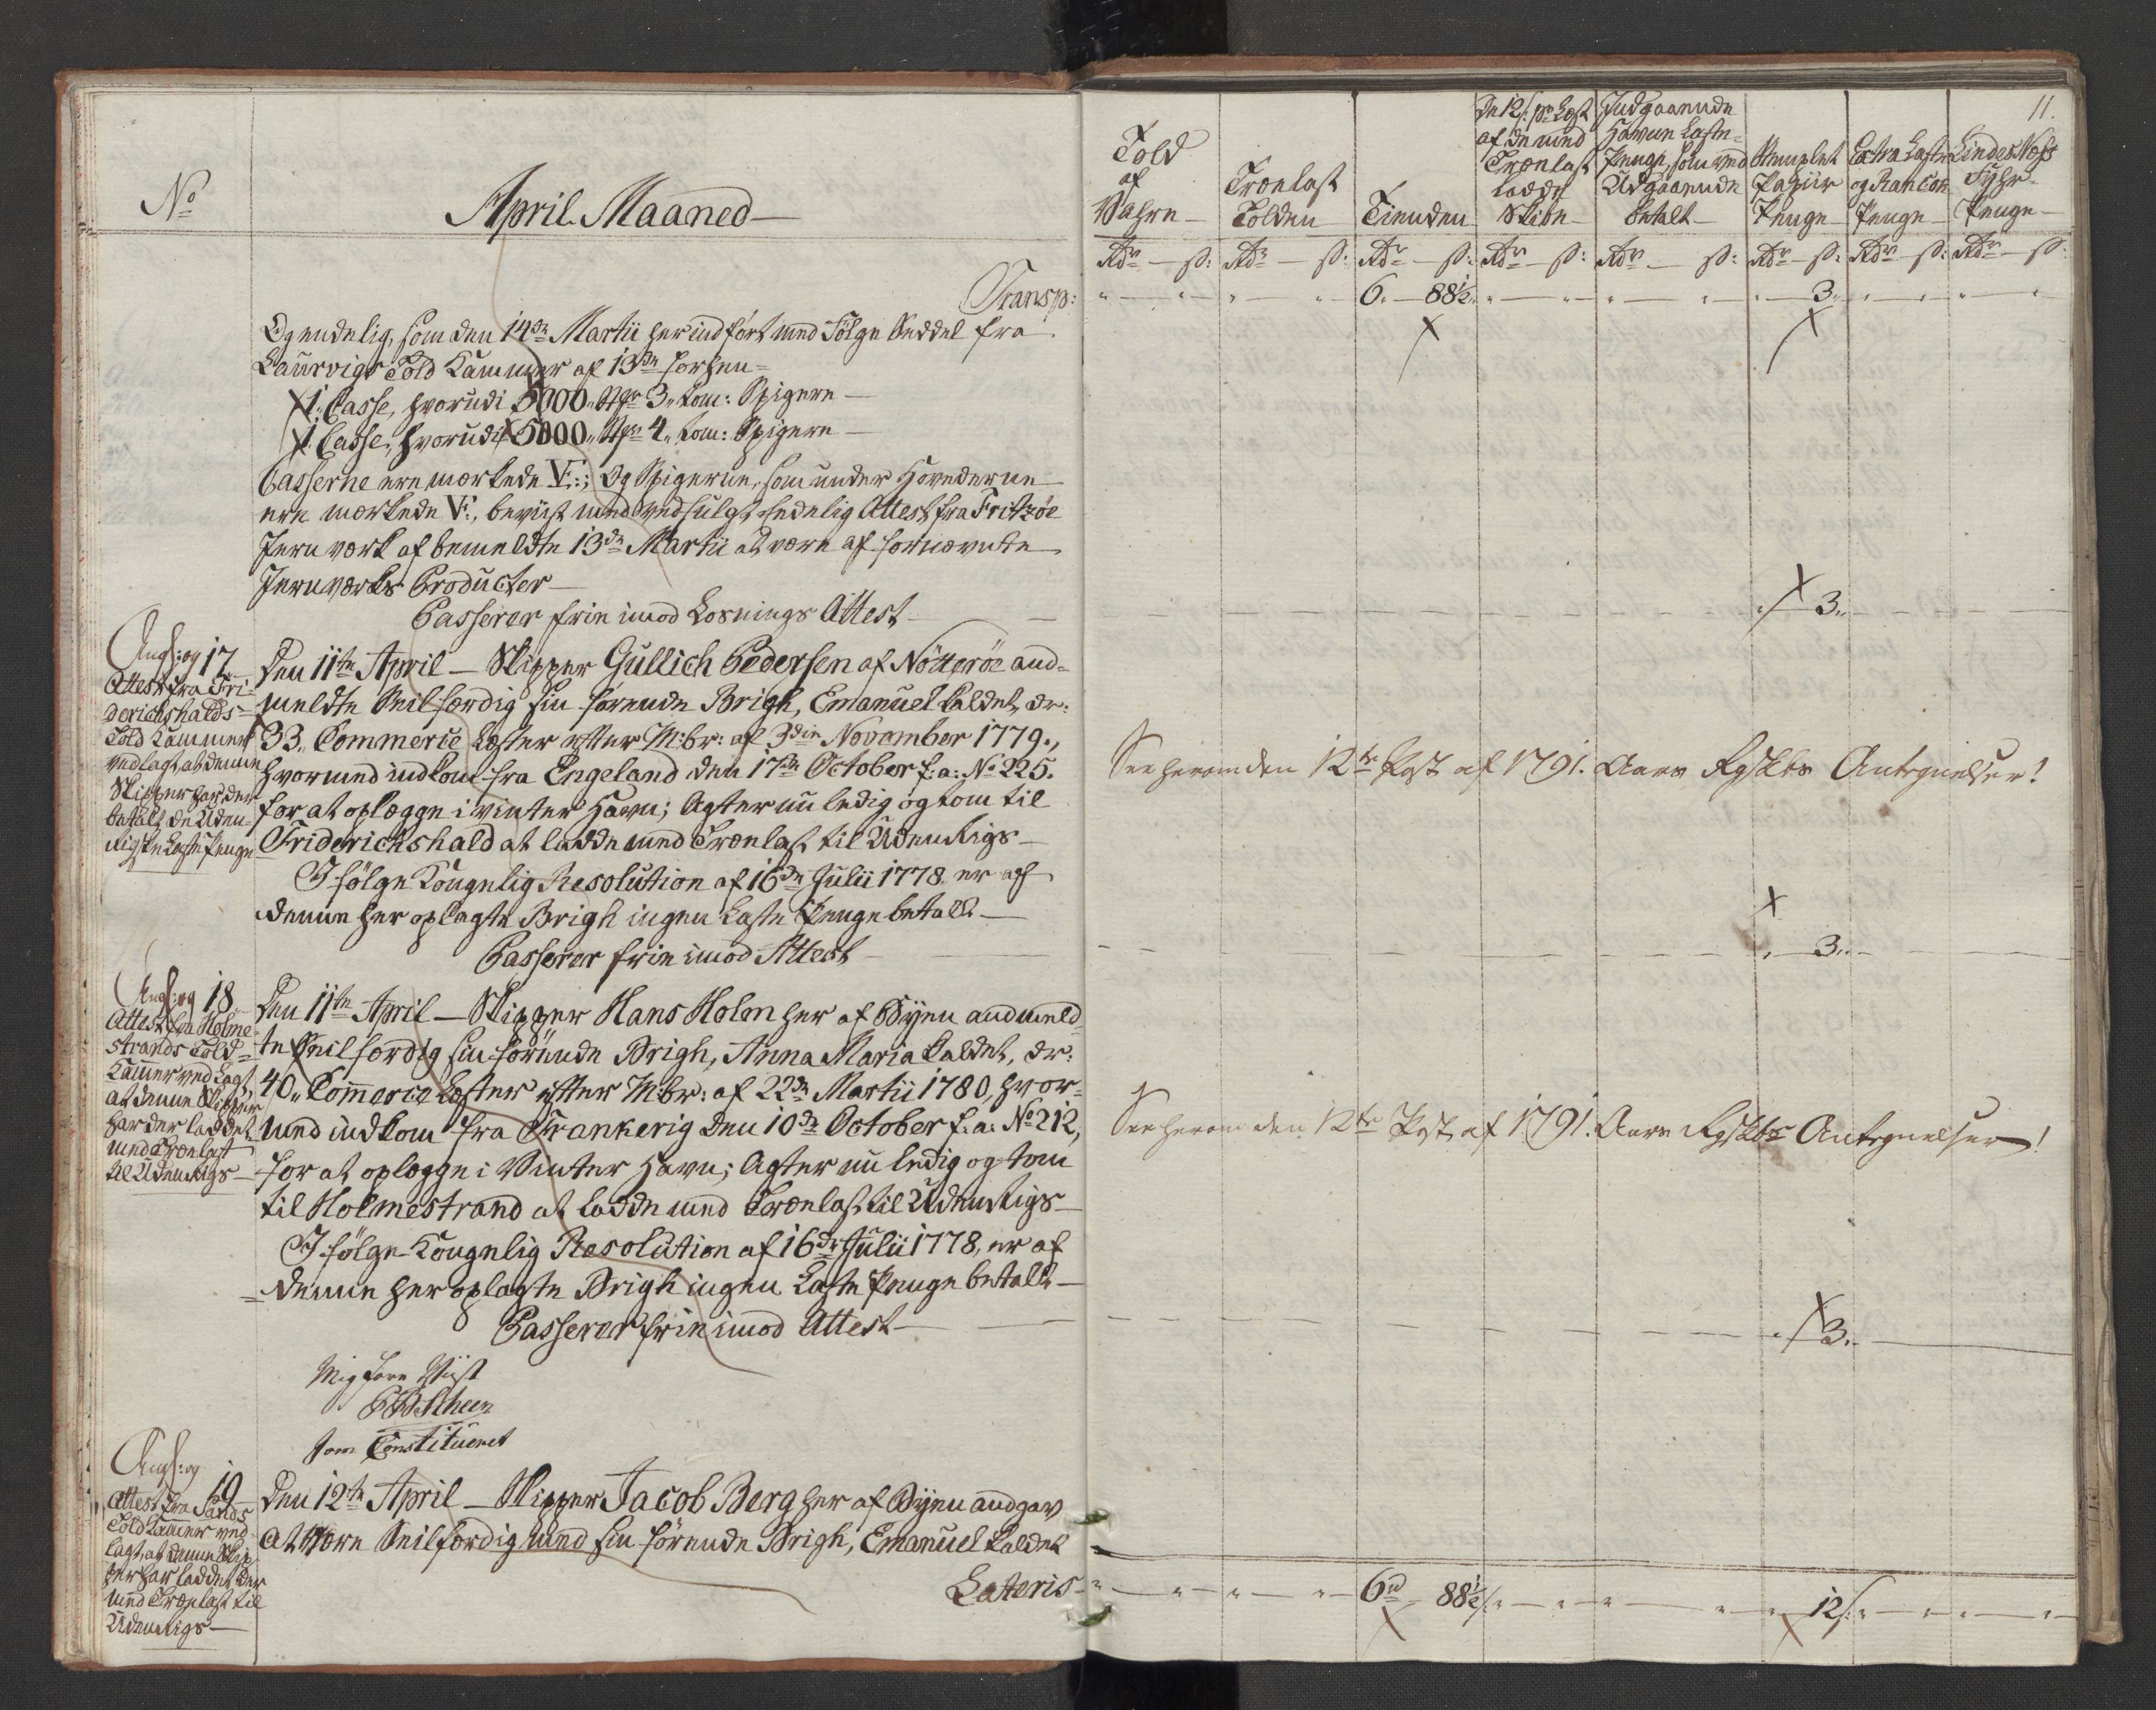 No
April Maaned
Transp:
Og endelig, som den 14de Martii her indført med Følge Seddel fra
Laurvigs Told Kammer af 13de forhen
1 Casse, hvorudi 5000 Stkr 3" tom: Spigere
1 Casse, hvorudi 5000 Stkr 4" tom: Spigere
Casserne ere mærkede VF:; Og Spigerne, som under Hovederne
ere mærkede VF:, beviist med vedfulgt Eedelig Attest fra Fritzøe
Jern værk af bemeldte 13de Martii at være af fornævnte
Jernværks Producter
Passerer frie imod Losnings Attest
Angf: og 17
Attest fra Fri-
derichshalds
Told Kammer
vedlagt, at denne
Skipper har der
betalt de Uden-
rigske Læste Penge
Den 11te April – Skipper Gullich Pedersen af Nötteröe and-
meldte Seilfærdig sin førende Brigh, Emanuel kaldet, dr:
33" Commerce Læster efter M:br: af 3die November 1779.,
hvormed indkom fra Engeland den 17de October f: a: No 225.
for at oplægge i vinter Havn; Agter nu ledig og tom til
Friderichshald at ladde med Trælast til Udenrigs
I følge Kongelig Resolution af 16de Julii 1778 er af
denne her oplagte Brigh ingen Læste Penge betalt
Passerer frie imod Attest
Angf: og 18
Attest fra Holme-
strands Told
Kammer vedlagt
at denne Skipper
har der laddet
med Trælast
til Udenrigs
Den 11te April – Skipper Hans Holm her af Byen andmeld-
te Seilfærdig sin førende Brigh, Anna Maria kaldet, dr:
40" Commerce Læster efter M:br: af 22de Martii 1780, hvor-
med indkom fra Frankerig den 10de October f: a: No 212,
for at oplægge i Vinter Havn; Agter nu ledig og tom
til Holmestrand at ladde med Trælast til Udenrigs
I følge Kongelig Resolution af 16de Julii 1778, er af
denne her oplagte Brigh ingen Læste Penge betalt
Passerer frie imod Attest
Mig fore Viist
Scheen
som Constitueret
Angf: og 19
Attest fra Sands
Told Kammer ved-
lagt, at denne Skip-
per har laddet der
med Trælast til
Udenrigs
Den 12te April – Skipper Jacob Berg her af Byen andgav
at være Seilfærdig med sin førende Brigh, Emanuel kaldet
Lateris
11.
Told
af
Vahre
Trælast
Tolden
Tienden
De 12 s: pr Læst
af de med
Trælast
ladde
Skibe
Indgaaende
Havne Læste
Penge, som ved
Udgaaende
betalt
Stemplet
Papiir
Penge
Extra Læste
og Rancon
Penge
Lindes Næss
Fyhr
Penge
Rdr – s: Rdr – s: Rdr – s: Rdr – s: Rdr – s: Rdr – s: Rdr – s: Rdr – s:
6. 88½. 3.
3.
See herom den 12te Post af 1791. Aars Rgskbs Antegnelser!
3.
See herom den 12te Post af 1791. Aars Rgskbs Antegnelser!
3.
6rd 88½ s: 12 s: